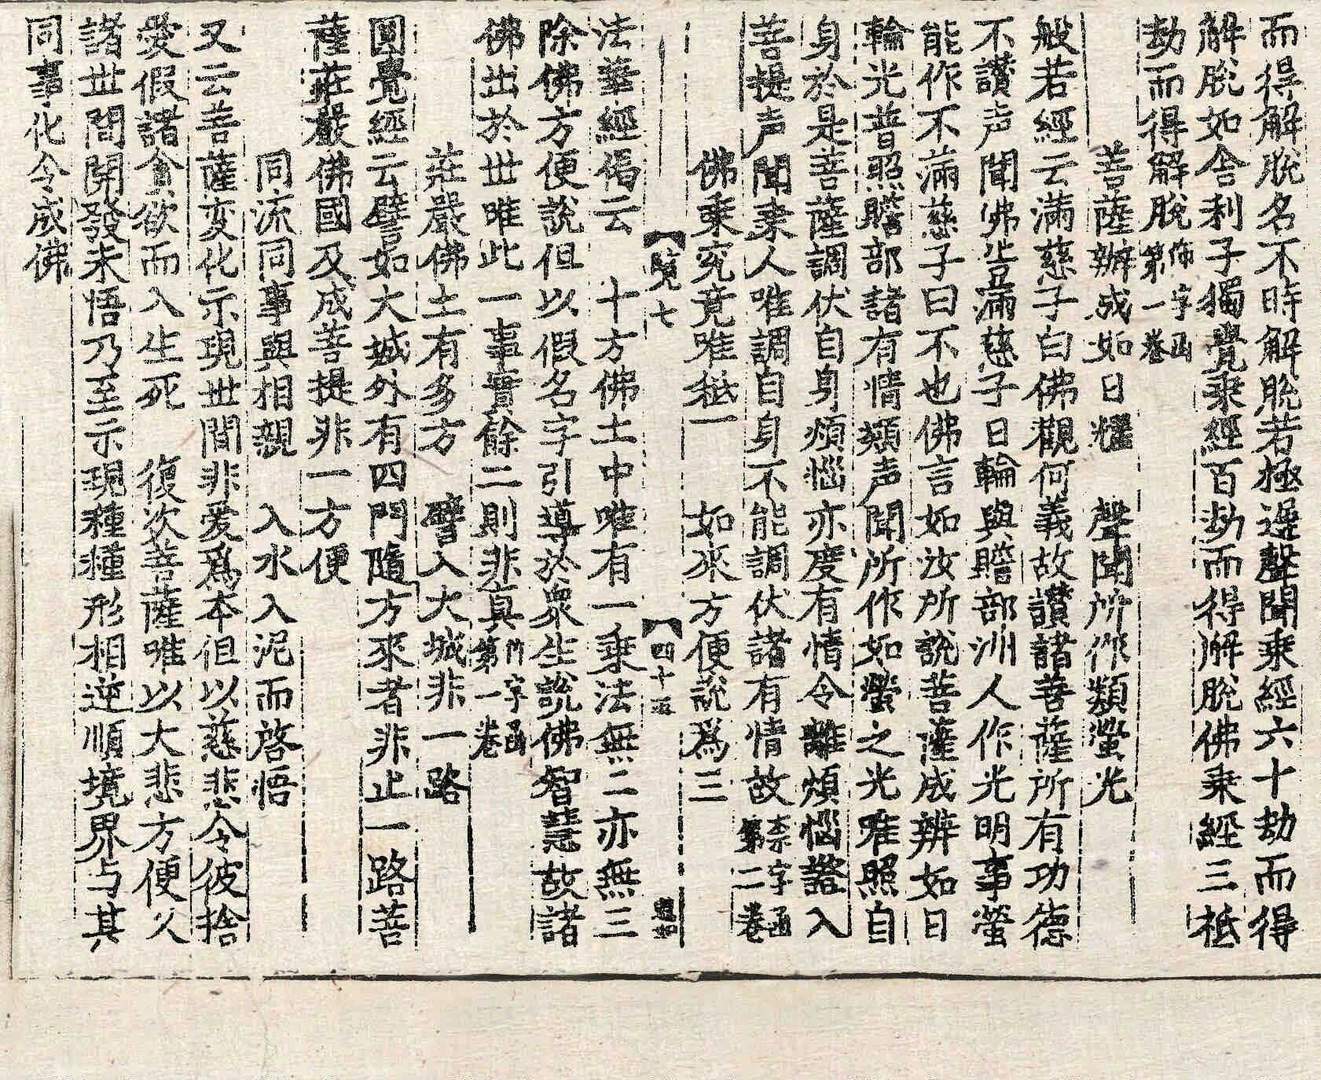 而得解脫名不時解脫若極遅聲聞乗經六十劫而得
解脫如舍利子獨覺乗經百劫而得解脫佛乗經三祗
劫而得解脫 第一卷
菩薩辦成如日耀 聲聞所作類螢光
般若經云滿慈子白佛觀何義故讃諸菩薩所有功德
不讃声聞佛告滿慈子日輪與贍部洲人作光明事螢
能作不滿慈子曰不也佛言如汝所說菩薩成辨如日
輪光普照贍部諸有情類声聞所作如螢之光唯照自
身於是菩薩調伏自身煩惱亦度有情令離煩惱證入
菩提声聞乗人唯調自身不能調伏諸有情故 柰字函第二卷
佛乗究竟唯秪一 如來方便說爲三
覧七 四十五
法華經偈云 十方佛土中唯有一乗法無二亦無三
除佛方便說但以假名字引導於衆生說佛智慧故諸
佛出於世唯此一事實餘二則非真 竹字函第一卷
莊嚴佛土有多方 譬入大城非一路
圓覺經云譬如大城外有四門隨方來者非止一路菩
薩莊嚴佛國及成菩提非一方便
同流同事與相親 入水入泥而啓悟
又云菩薩変化示現世間非爱爲本但以慈悲令彼捨
爱假諸貪欲而入生死 復次菩薩唯以大悲方便入
諸世間開發未悟乃至示現種種形相逆順境界与其
同事化令成佛